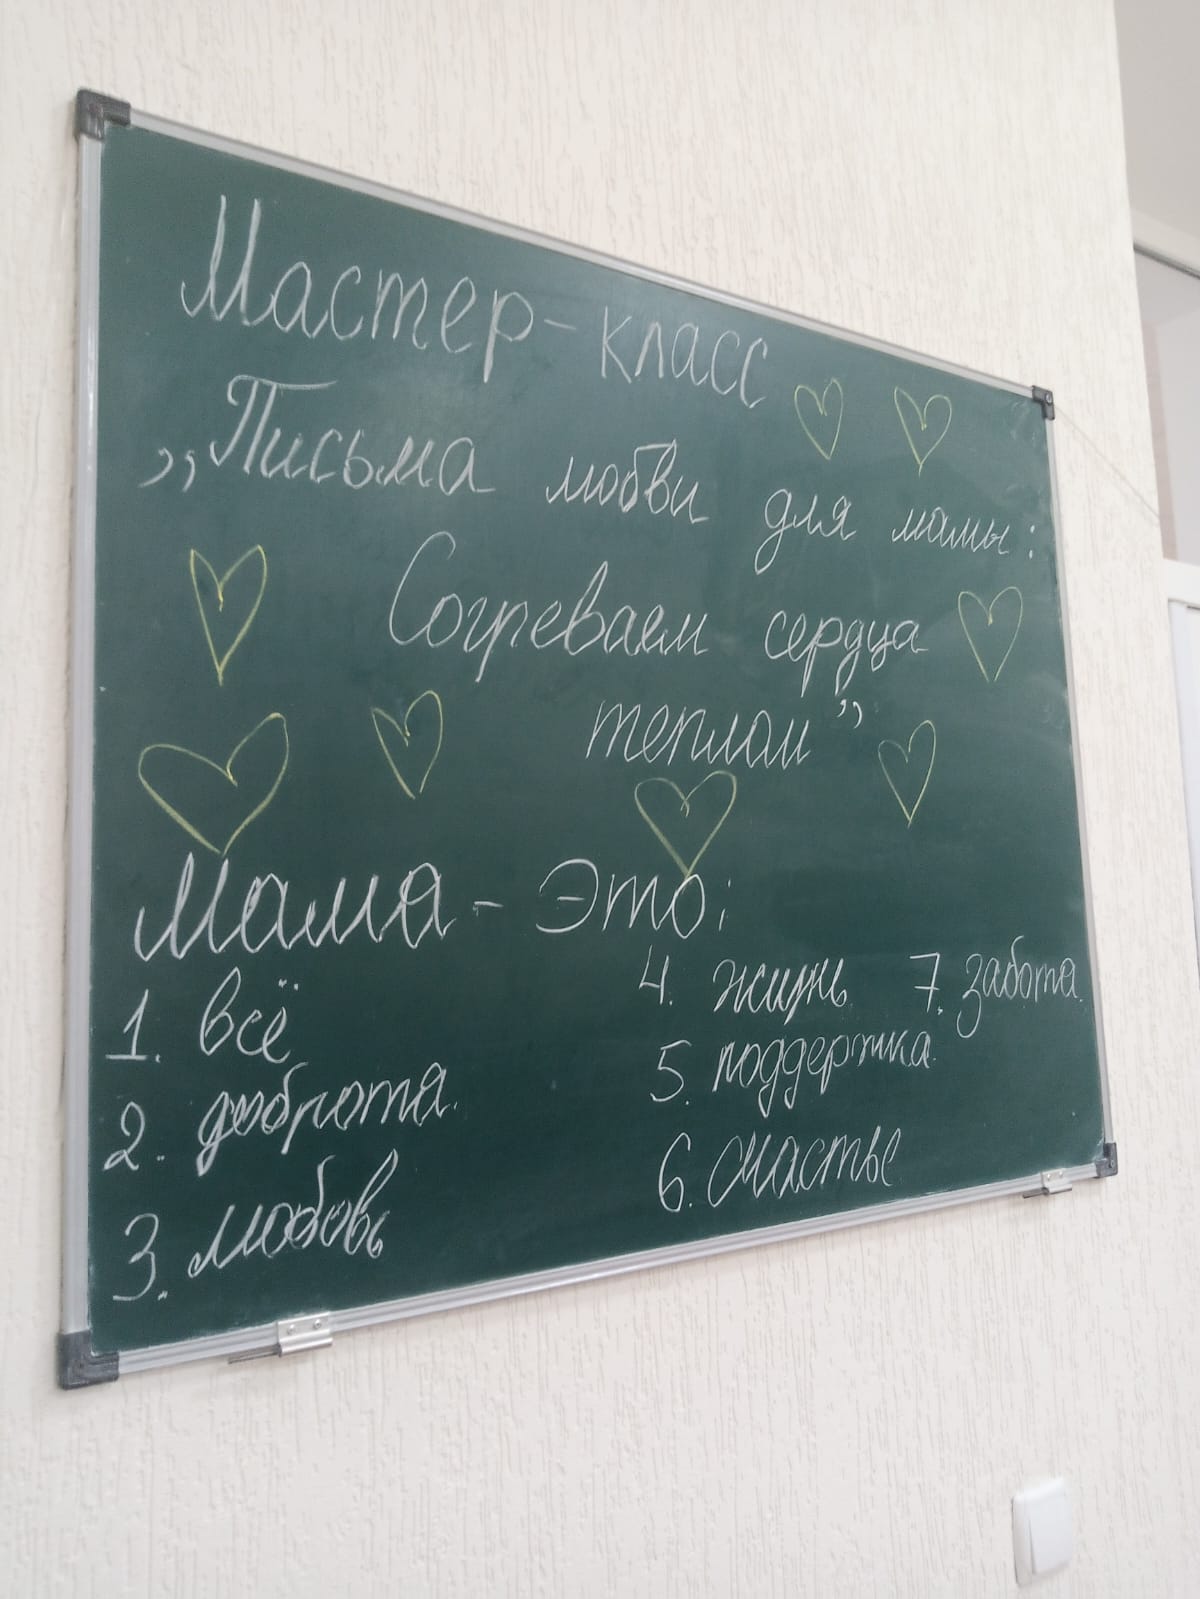 Мастер-класс
„Письма любви для мамы:
Согреваем сердца
теплом”
Мама - Это:
1. всё
2. доброта.
3. любовь
4. жизнь
5. поддержка.
6. счастье
7. забота.